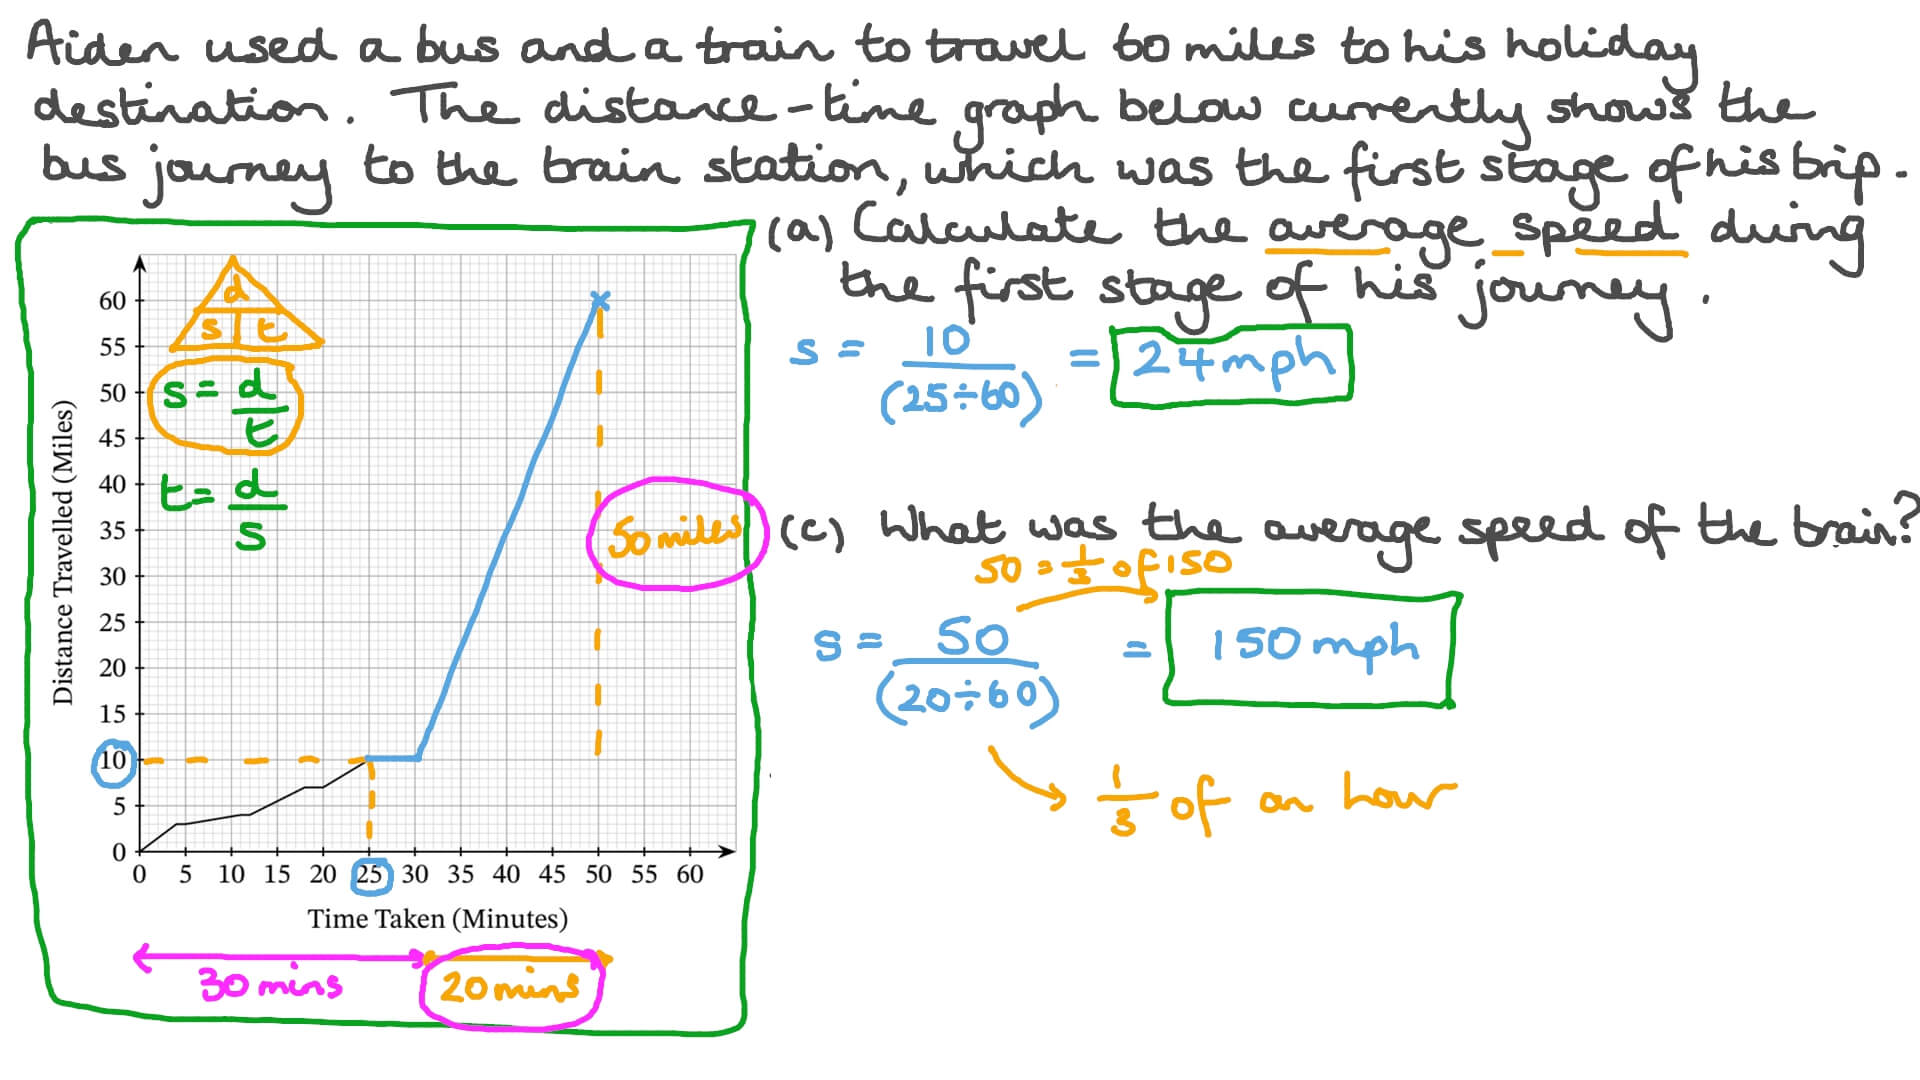 Aiden used a bus and a train to travel 60 miles to his holiday
destination. The distance-time graph below currently shows the
bus journey to the train station, which was the first stage of his trip.
(a) Calculate the average speed during
the first stage of his journey.
s = 10 / (25÷60) = 24mph
(c) What was the average speed of the train?
50 = 1/3 of 150
s = 50 / (20÷60) = 150mph
1/3 of an hour
d
s t
s = d/t
t = d/s
Distance Travelled (Miles)
60
55
50
45
40
35
30
25
20
15
10
5
0
50 miles
0 5 10 15 20 25 30 35 40 45 50 55 60
Time Taken (Minutes)
30 mins 20 mins